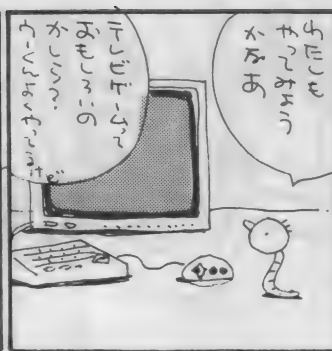 やってみよう
かなあ
テレビゲームって
おもしろいの
かしら
よくやってるけど